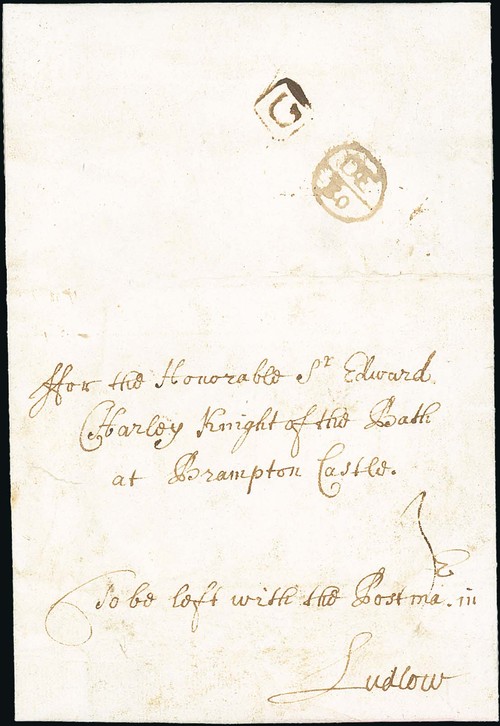 G
DE
30
ffor the Honorable Sr Edward
Harley Knight of the Bath
at Brampton Castle.
To be left with the Postma. in
Ludlow